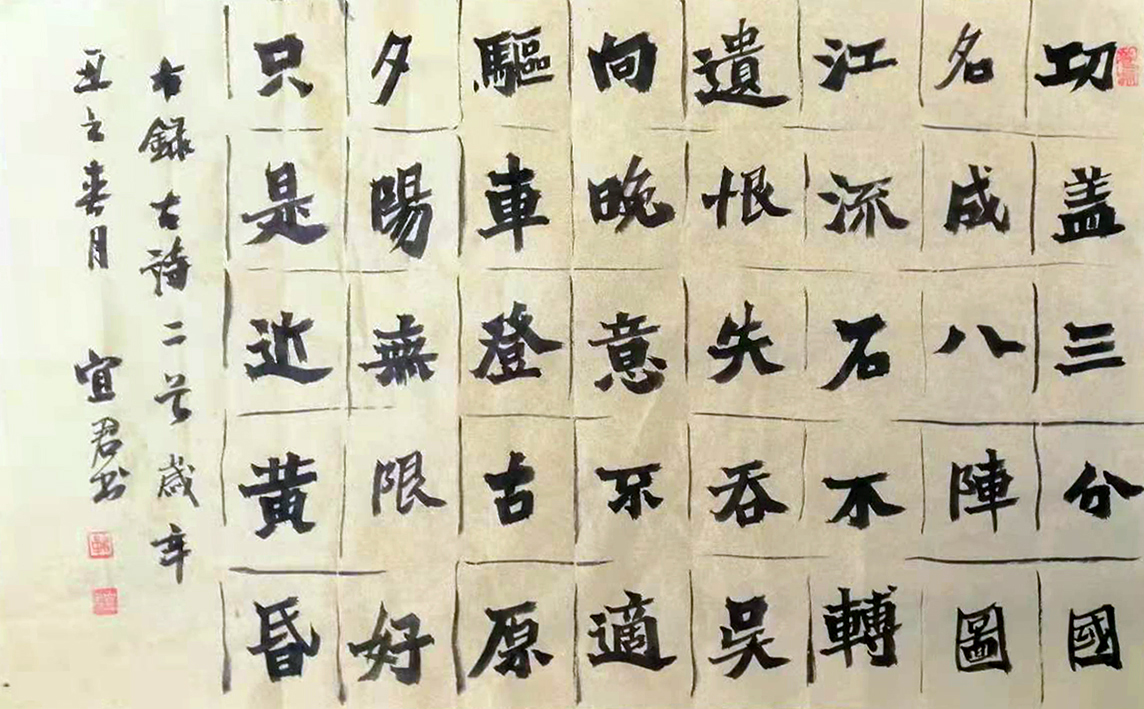 功盖三分國
名成八陣圖
江流石不轉
遺恨失吞吳
向晚意不適
驅車登古原
夕陽無限好
只是近黃昏
右録古詩二首歳辛
丑之春月 宜君书